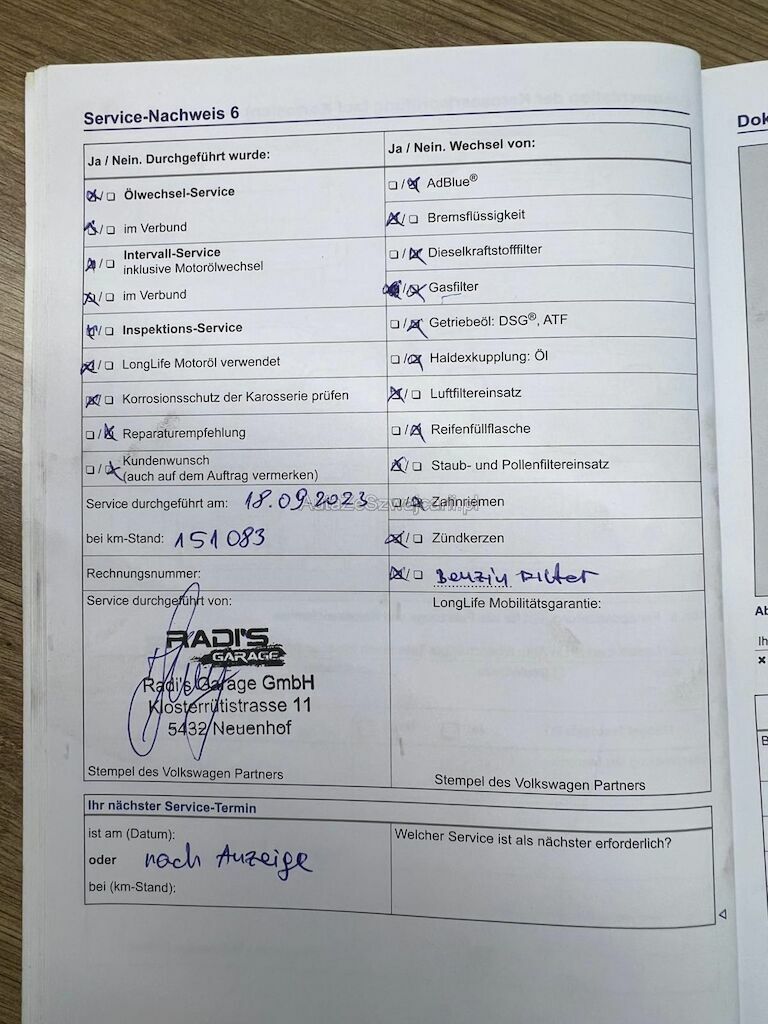 Service-Nachweis 6
Ja / Nein. Durchgeführt wurde:
Ölwechsel-Service
im Verbund
Intervall-Service
inklusive Motorölwechsel
im Verbund
Inspektions-Service
LongLife Motoröl verwendet
Korrosionsschutz der Karosserie prüfen
Reparaturempfehlung
Kundenwunsch
(auch auf dem Auftrag vermerken)
Service durchgeführt am: 18.09.2023
bei km-Stand: 151083
Rechnungsnummer:
Service durchgeführt von:
RADI'S
GARAGE
Radi's Garage GmbH
Klosterrütistrasse 11
5432 Neuenhof
Stempel des Volkswagen Partners
Ja / Nein. Wechsel von:
AdBlue®
Bremsflüssigkeit
Dieselkraftstofffilter
Gasfilter
Getriebeöl: DSG®, ATF
Haldexkupplung: Öl
Luftfiltereinsatz
Reifenfüllflasche
Staub- und Pollenfiltereinsatz
Zahnriemen
Zündkerzen
Benzin Filter
LongLife Mobilitätsgarantie:
Stempel des Volkswagen Partners
AutaZeSzwajcarii.pl
Ihr nächster Service-Termin
ist am (Datum):
oder nach Anzeige
bei (km-Stand):
Welcher Service ist als nächster erforderlich?
Dok
Ab
Ih
B